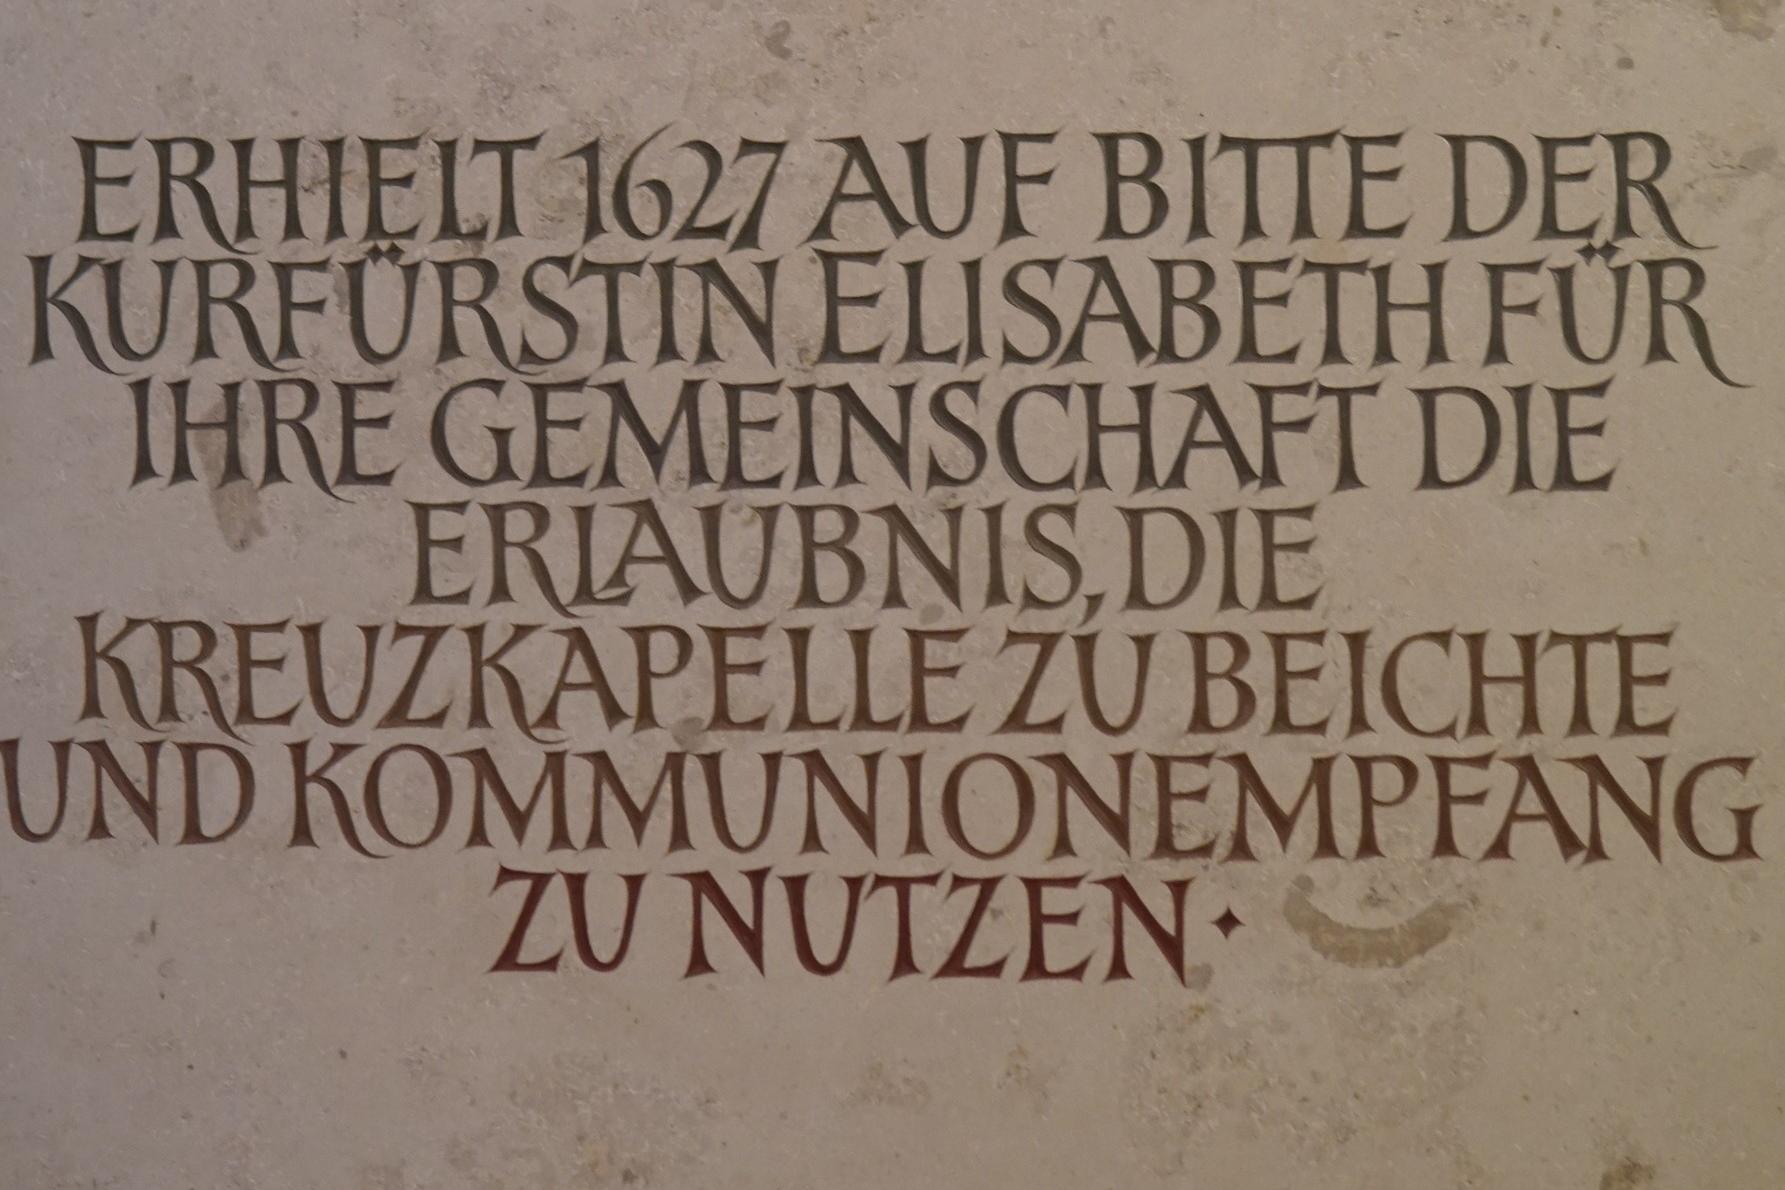 ERHIELT 1627 AUF BITTE DER
KURFÜRSTIN ELISABETH FÜR
IHRE GEMEINSCHAFT DIE
ERLAUBNIS, DIE
KREUZKAPELLE ZU BEICHTE
UND KOMMUNIONEMPFANG
ZU NUTZEN ·